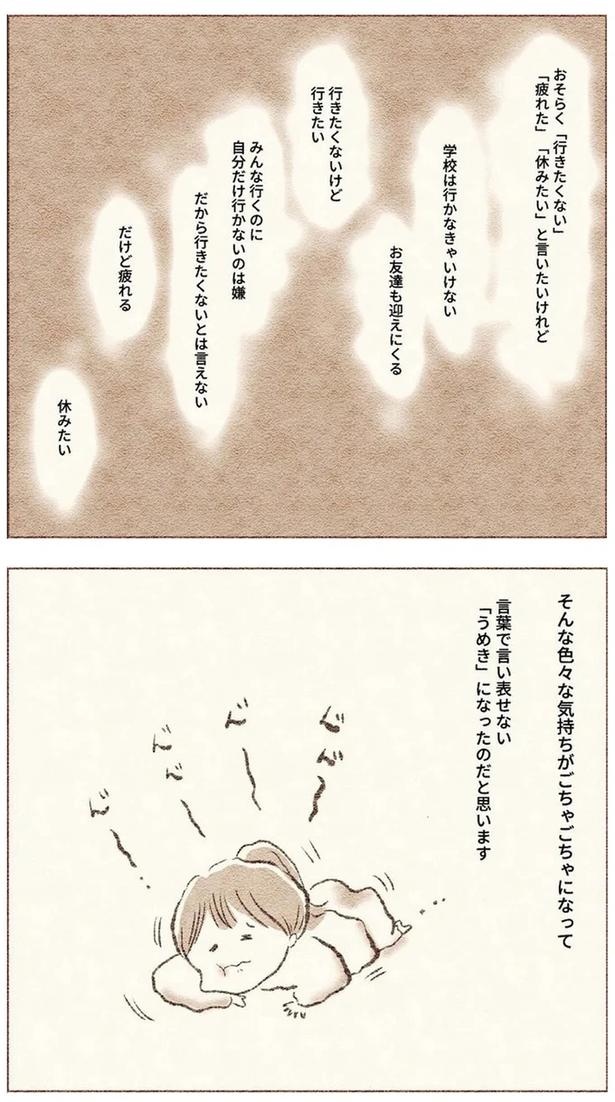 おそらく「行きたくない」
「疲れた」「休みたい」と言いたいけれど
学校は行かなきゃいけない
お友達も迎えにくる
行きたくないけど
行きたい
みんな行くのに
自分だけ行かないのは嫌
だから行きたくないとは言えない
だけど疲れる
休みたい
そんな色々な気持ちがごちゃごちゃになって
言葉で言い表せない
「うめき」になったのだと思います
ん゛ん゛ー
ん゛ー
ん゛ん゛ー
ん゛ー